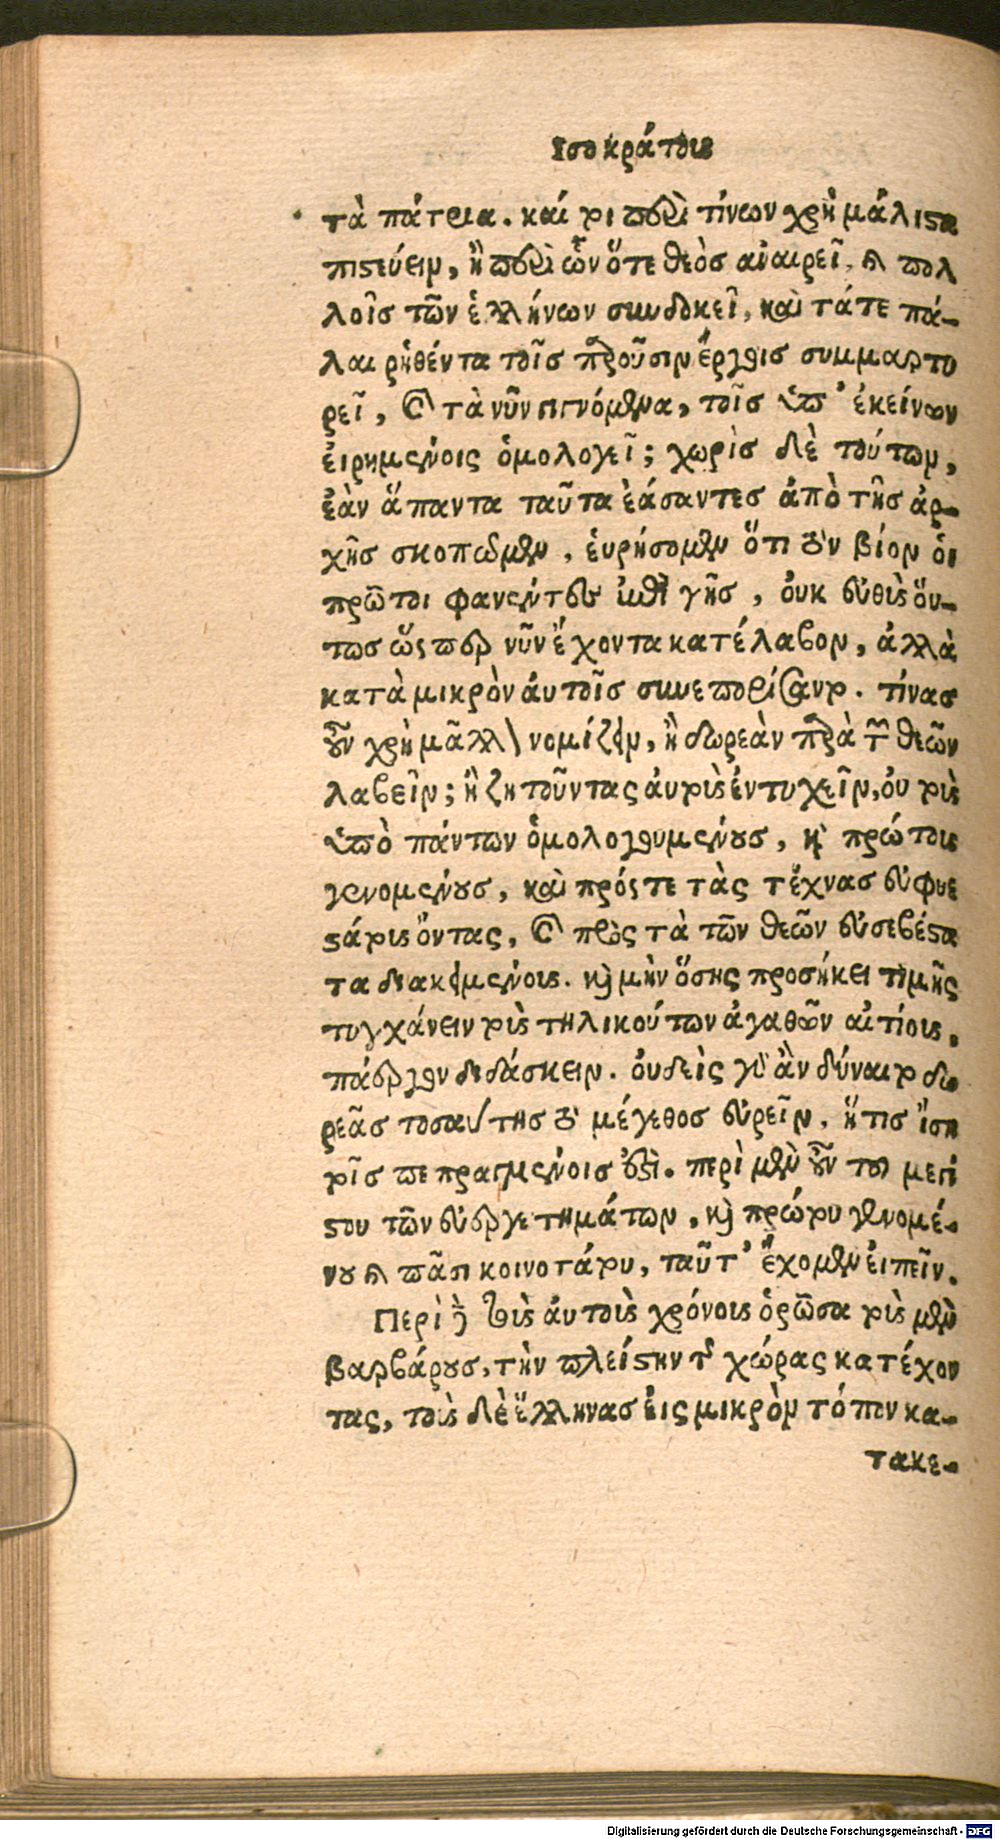 Ισοκράτους
τὰ πάτρια. καί τοι περὶ τίνων χρὴ μάλιστα
πιστεύειν, ἢ περὶ ὧν ὅτε θεὸσ αναιρεῖ, καὶ πολ
λοῖς τῶν ἑλλήνων συνδοκεῖ, καὶ τάτε πά-
λαι ῥηθέντα τοῖσ παροῦσιν ἔργοισ συμμαρτυ
ρεῖ, καὶ τὰ νῦν γιγνόμενα, τοῖσ ὑπ' ἐκείνων
ἐιρημένοις ὁμολογεῖ; χωρὶσ δὲ τούτων,
ἐὰν ἅπαντα ταῦτα ἐάσαντεσ ἀπὸ τῆσ ἀρ-
χῆσ σκοπῶμεν, ἑυρήσομεν ὅτι τὸν βίον ὁι
πρῶτοι φανέντες ἐπὶ γῆσ, ὀυκ εὐθὺς ὅυ-
τωσ ὥςπερ νῦν ἔχοντα κατέλαβον, ἀλλὰ
κατὰ μικρὸν ἀυτοῖσ συνεπορίσαντο. τίνασ
οὖν χρὴ μᾶλλον νομίζειν, ἢ δωρεὰν παρὰ τῶν θεῶν
λαβεῖν; ἢ ζητοῦντας ἀυτοὺς ἐντυχεῖν, ὀυ τοὺς
ὑπὸ πάντων ὁμολογουμένουσ, καὶ πρώτους
γενομένουσ, καὶ πρόςτε τὰς τέχνασ εὐφυε
στάτους ὄντας, καὶ πρὸς τὰ τῶν θεῶν εὐσεβέστα
τα διακειμένους. καὶ μὴν ὅσης προσήκει τιμῆς
τυγχάνειν τοὺς τηλικούτων ἀγαθῶν αἰτίους,
πάρεργον διδάσκειν. ὀυδεὶς γὰρ ἂν δύναιτο δω
ρεᾶσ τοσαύτησ τὸ μέγεθοσ εὐρεῖν, ἥτισ ἴση
τοῖσ πεπραγμένοισ ἐστὶ. περὶ μὲν οὖν τοῦ μεγί
στου τῶν εὐεργετημάτων, καὶ πρώτου γενομέ-
νου καὶ πᾶσι κοινοτάτου, ταῦτ' ἔχομεν ἐιπεῖν.
Περὶ δὲ τοὺς ἀυτοὺς χρόνους ὁρῶσα τοὺς μὲν
βαρβάρουσ, τὴν πλείστην τῆς χώρας κατέχον
τας, τοὺς δὲ ἕλληνασ ἐις μικρὸν τόπον κα-
τακε-
Digitalisierung gefördert durch die Deutsche Forschungsgemeinschaft - DFG